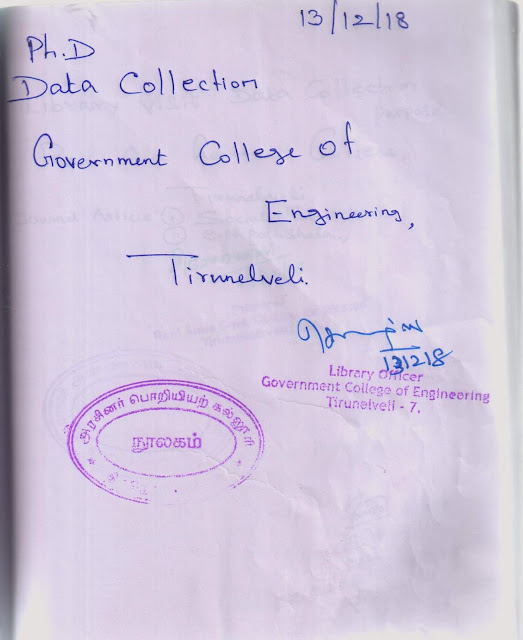 13/12/18
Ph.D
Data Collection
Government College of
Engineering,
Tirunelveli.
131218
Library Officer
Government College of Engineering
Tirunelveli - 7.
அரசினர் பொறியியற் கல்லூரி
நூலகம்